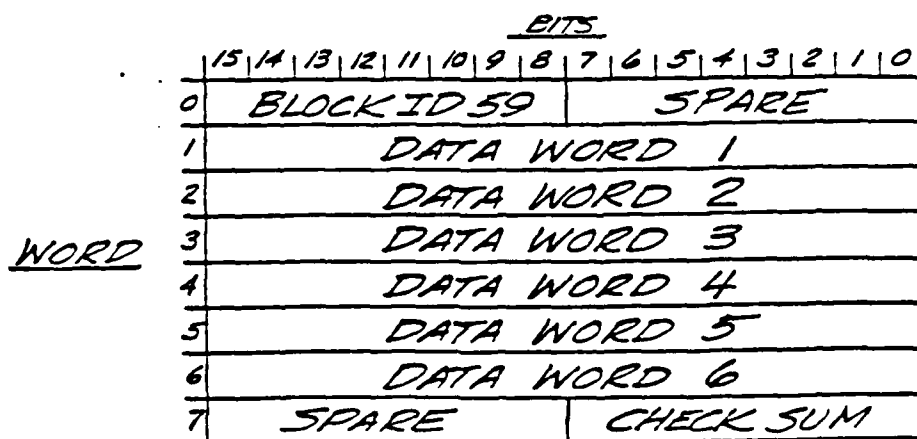 BITS
15 14 13 12 11 10 9 8 7 6 5 4 3 2 1 0
0 BLOCK ID 59 SPARE
1 DATA WORD 1
2 DATA WORD 2
WORD 3 DATA WORD 3
4 DATA WORD 4
5 DATA WORD 5
6 DATA WORD 6
7 SPARE CHECK SUM